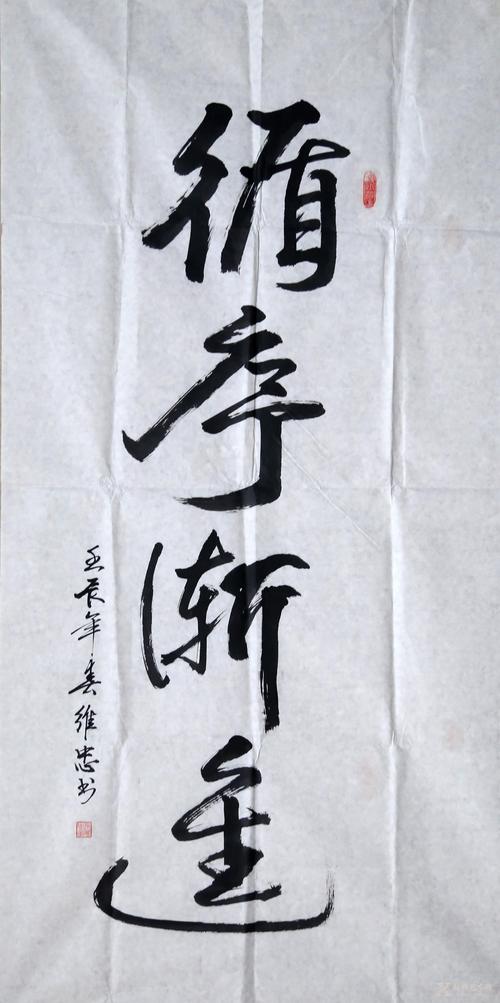 循序渐进
壬辰年春维忠书